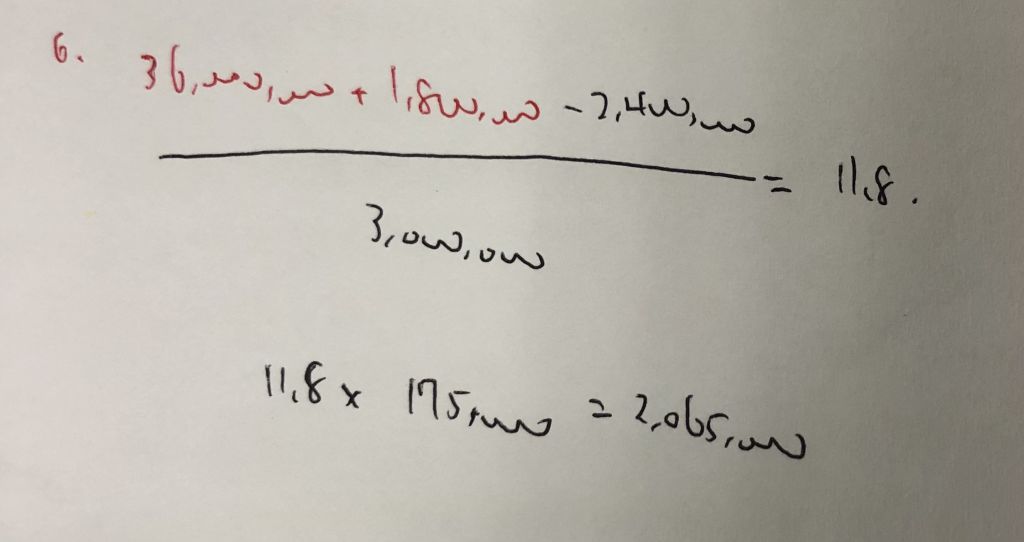 6. 36,000,000 + 1,800,000 - 2,400,000
= 11.8.
3,000,000
11.8 x 175,000 = 2,065,000